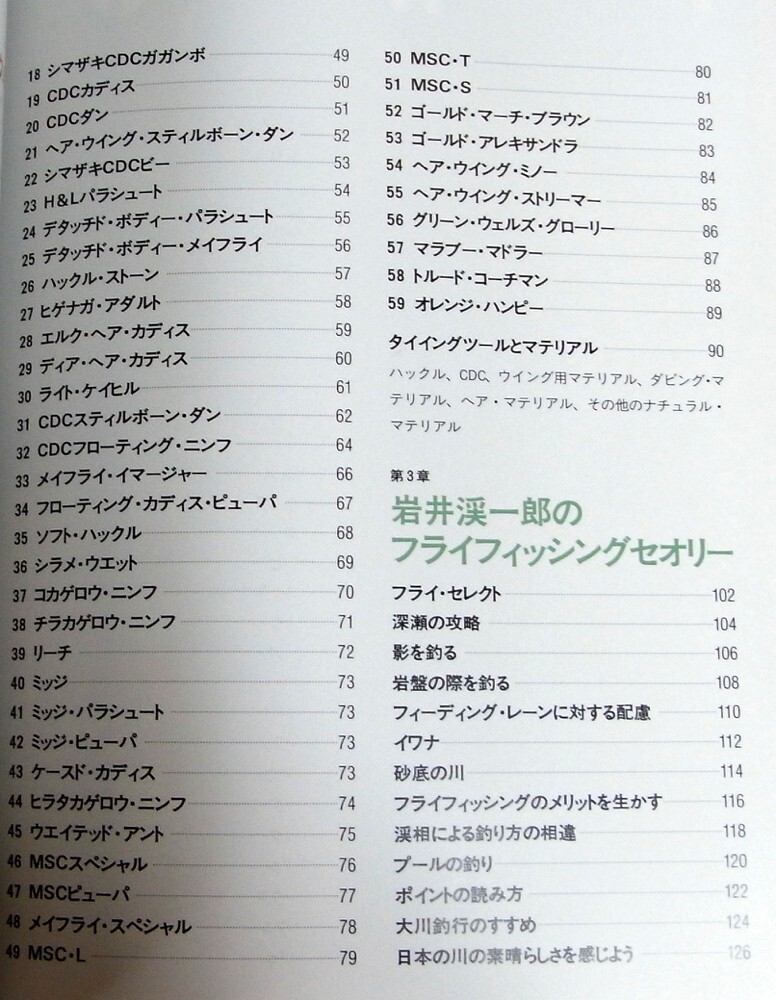 18 シマザキCDCガガンボ 49
19 CDCカディス 50
20 CDCダン 51
21 ヘア・ウイング・スティルボーン・ダン 52
22 シマザキCDCビー 53
23 H&Lパラシュート 54
24 デタッチド・ボディー・パラシュート 55
25 デタッチド・ボディー・メイフライ 56
26 ハックル・ストーン 57
27 ヒゲナガ・アダルト 58
28 エルク・ヘア・カディス 59
29 ディア・ヘア・カディス 60
30 ライト・ケイヒル 61
31 CDCスティルボーン・ダン 62
32 CDCフローティング・ニンフ 64
33 メイフライ・イマージャー 66
34 フローティング・カディス・ピューパ 67
35 ソフト・ハックル 68
36 シラメ・ウエット 69
37 コカゲロウ・ニンフ 70
38 チラカゲロウ・ニンフ 71
39 リーチ 72
40 ミッジ 73
41 ミッジ・パラシュート 73
42 ミッジ・ピューパ 73
43 ケースド・カディス 73
44 ヒラタカゲロウ・ニンフ 74
45 ウエイテッド・アント 75
46 MSCスペシャル 76
47 MSCピューパ 77
48 メイフライ・スペシャル 78
49 MSC・L 79
50 MSC・T 80
51 MSC・S 81
52 ゴールド・マーチ・ブラウン 82
53 ゴールド・アレキサンドラ 83
54 ヘア・ウイング・ミノー 84
55 ヘア・ウイング・ストリーマー 85
56 グリーン・ウェルズ・グローリー 86
57 マラブー・マドラー 87
58 トルード・コーチマン 88
59 オレンジ・ハンピー 89
タイイングツールとマテリアル 90
ハックル、CDC、ウイング用マテリアル、ダビング・マ
テリアル、ヘア・マテリアル、その他のナチュラル・
マテリアル
第3章
岩井渓一郎の
フライフィッシングセオリー
フライ・セレクト 102
深瀬の攻略 104
影を釣る 106
岩盤の際を釣る 108
フィーディング・レーンに対する配慮 110
イワナ 112
砂底の川 114
フライフィッシングのメリットを生かす 116
渓相による釣り方の相違 118
プールの釣り 120
ポイントの読み方 122
大川釣行のすすめ 124
日本の川の素晴らしさを感じよう 126